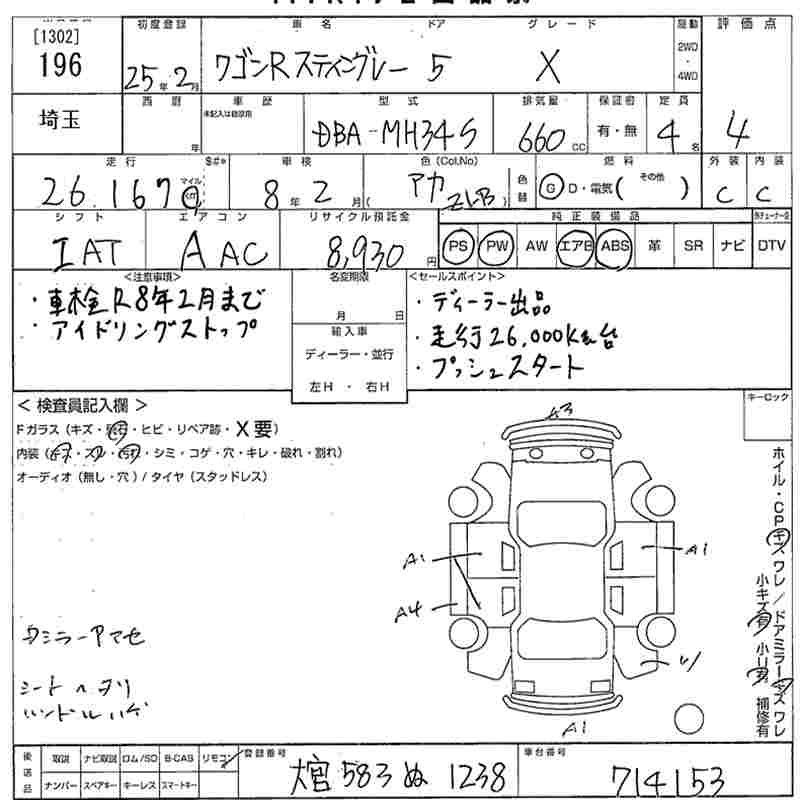 [1302]
196
初度登録
25年2月
車名
ワゴンRスティングレー
ドア
5
グレード
X
駆動
2WD
・
4WD
評価点
4
埼玉
西暦
年
車歴
未記入は自家用
型式
DBA-MH34S
排気量
660CC
保証書
有・無
定員
4名
走行
26,167
マイル
Km
S#*
車検
8年2月
色(Col.No)
(アカ ZLB)
色替
燃料
G D・電気( その他 )
外装
C
内装
C
シフト
IAT
エアコン
AAC
リサイクル預託金
8,930円
純正装備品
PS PW AW エアB ABS 革 SR ナビ DTV
<注意事項>
・車検R8年2月まで
・アイドリングストップ
名変期限
月 日
輸入車
ディーラー・並行
左H ・ 右H
<セールスポイント>
・ディーラー出品
・走行26,000Km台
・プッシュスタート
キーロック
<検査員記入欄>
Fガラス(キズ・飛石・ヒビ・リペア跡・X要)
内装(キズ・スレ・汚れ・シミ・コゲ・穴・キレ・破れ・割れ)
オーディオ(無し・穴)/タイヤ(スタッドレス)
A3
A1
A1
A4
A1
シートヘタリ
ハンドルハゲ
ホイル・CPキズワレ/ドアミラーキズワレ
小キズ有 小リ有 補修有
後送品
取説 ナビ取説 ロム/SD B-CAS リモコン
ナンバー スペアキー キーレス スマートキー
登録番号
大宮583ぬ1238
車台番号
714153